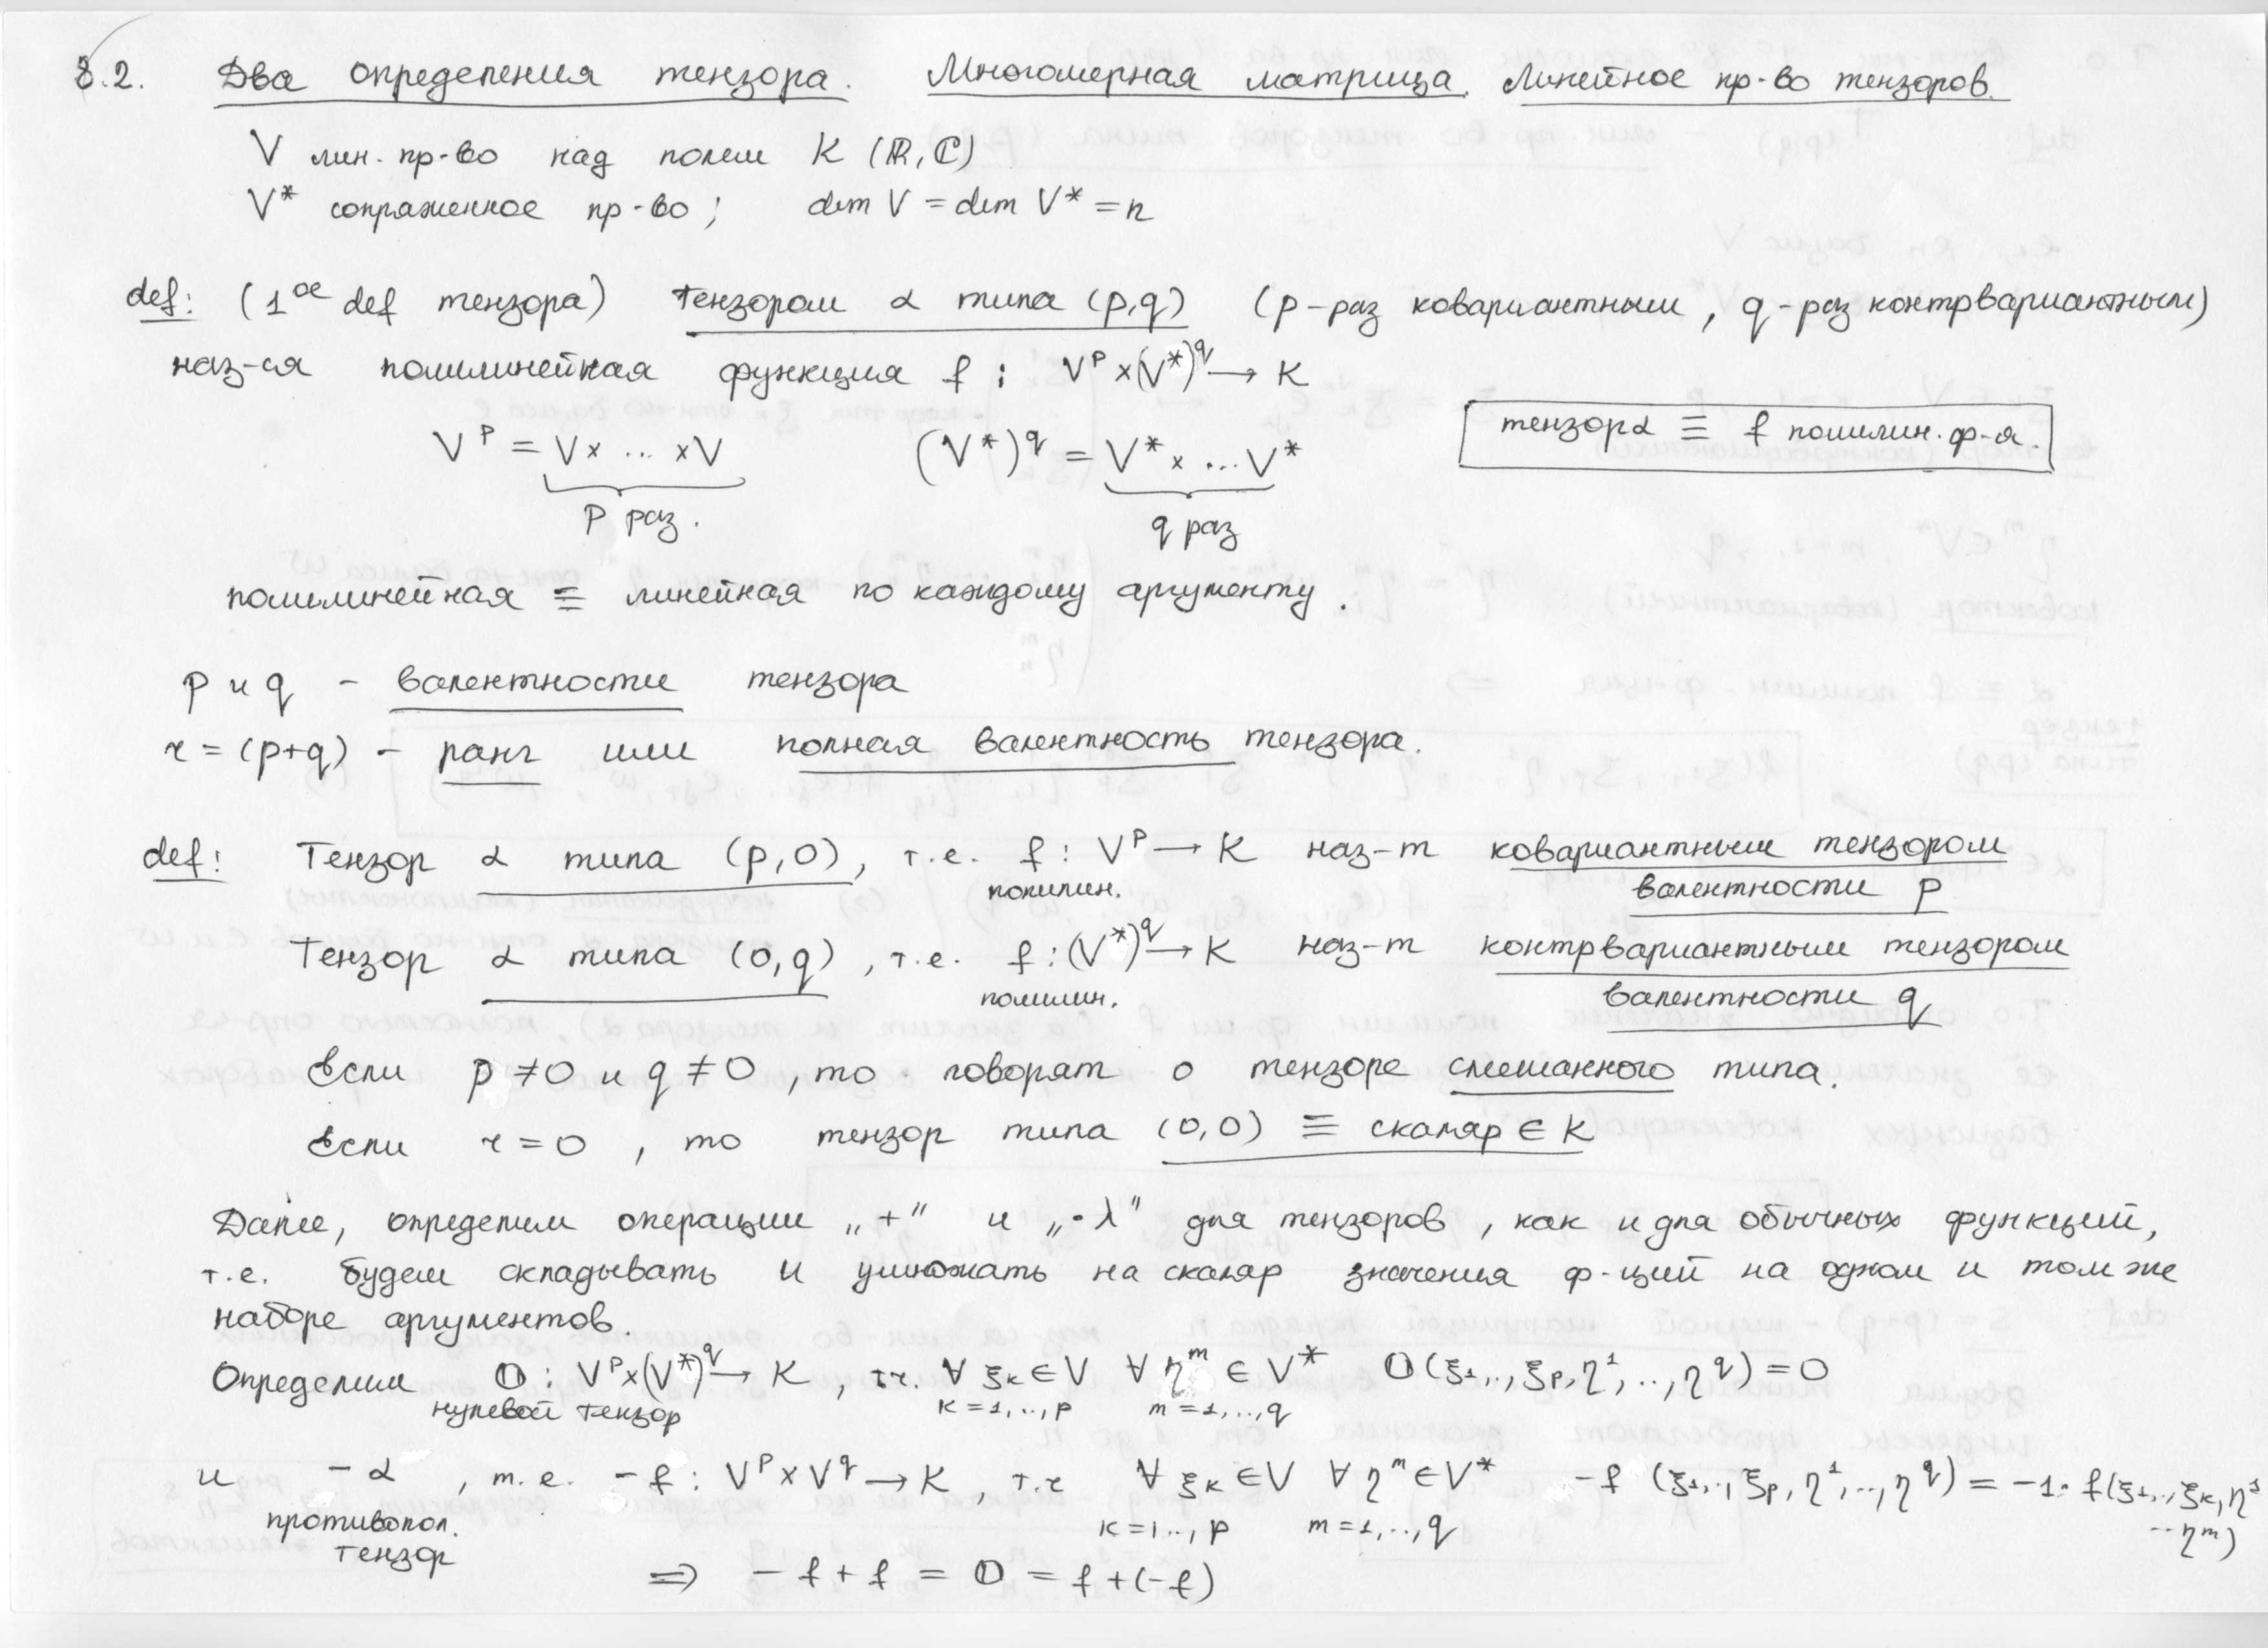 8.2. Два определения тензора. Многомерная матрица. Линейное пр-во тензоров.
V лин. пр-во над полем K (ℝ, ℂ)
V* сопряженное пр-во; dim V = dim V* = n
def: (1ᵒᵉ def тензора) Тензором α типа (p,q) (p-раз ковариантным, q-раз контрвариантным)
наз-ся полилинейная функция f : Vᵖ × (V*)^q → K
Vᵖ = V × ... × V (V*)^q = V* × ... V*
тензор α ≡ f полилин. ф-я.
p раз. q раз
полилинейная ≡ линейная по каждому аргументу.
p и q - валентности тензора
r = (p+q) - ранг или полная валентность тензора.
def: Тензор α типа (p,0), т.е. f : Vᵖ → K наз-т ковариантным тензором
полилин. валентности p
Тензор α типа (0,q), т.е. f : (V*)^q → K наз-т контрвариантным тензором
полилин. валентности q
Если p ≠ 0 и q ≠ 0, то говорят о тензоре смешанного типа.
Если r = 0, то тензор типа (0,0) ≡ скаляр ∈ K
Далее, определим операции „+" и „·λ" для тензоров, как и для обычных функций,
т.е. будем складывать и умножать на скаляр значения ф-ций на одном и том же
наборе аргументов.
Определим 𝟘 : Vᵖ × (V*)^q → K, т.ч. ∀ ξₖ ∈ V ∀ ηᵐ ∈ V* 𝟘(ξ₁,..,ξₚ,η¹,..,η^q) = 0
нулевой тензор к = 1,..,p m = 1,..,q
и - α, т.е. - f : Vᵖ × V^q → K, т.ч ∀ ξₖ ∈ V ∀ ηᵐ ∈ V* -f (ξ₁,..,ξₚ,η¹,..,η^q) = -1· f(ξ₁,..,ξₖ,η¹
противопол. к = 1..,p m = 1,..,q ..ηᵐ)
тензор
⇒ - f + f = 𝟘 = f + (-f)